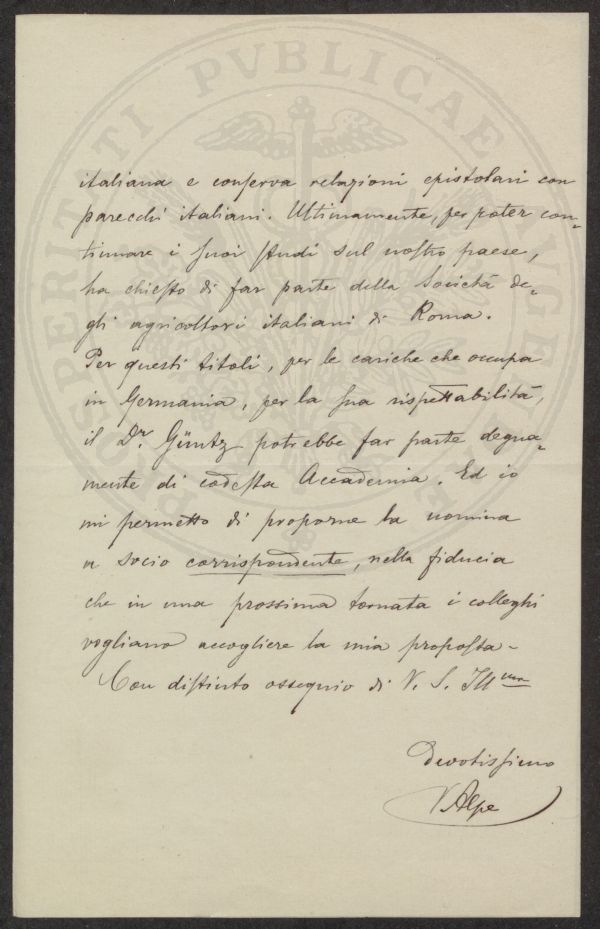 PROSPERITATI PVBLICAE AVGENDAE
italiana e conserva relazioni epistolari con
parecchi italiani. Ultimamente, per poter con-
tinuare i suoi studi sul nostro paese,
ha chiesto di far parte della Società de-
gli agricoltori italiani di Roma.
Per questi titoli, per le cariche che occupa
in Germania, per la sua rispettabilità,
il Dr. Güntz potrebbe far parte degna-
mente di codesta Accademia. Ed io
mi permetto di proporne la nomina
a socio corrispondente, nella fiducia
che in una prossima tornata i colleghi
vogliano accogliere la mia proposta -
Con distinto ossequio di V. S. Illma
Devotissimo
V Alpe